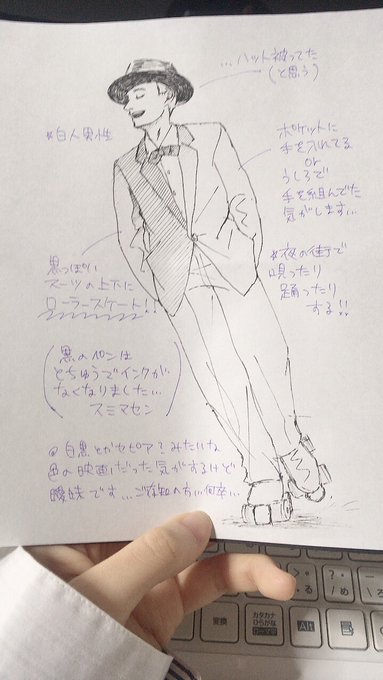 …ハット被ってた
(と思う)
*白人男性
ポケットに
手を入れてる
or
うしろで
手を組んでた
気がします…
黒っぽい
スーツの上下に
ローラースケート!!
*夜の街で
唄ったり
踊ったり
する!!
(黒のペンは
とちゅうでインクが
なくなりました…
スミマセン)
◎白黒とかセピア?みたいな
色の映画だった気がするけど
曖昧です…ご存知の方…何卒…
変換
カタカナ
ひらがな
ローマ字
Alt
>
。
る
?
・
/
め